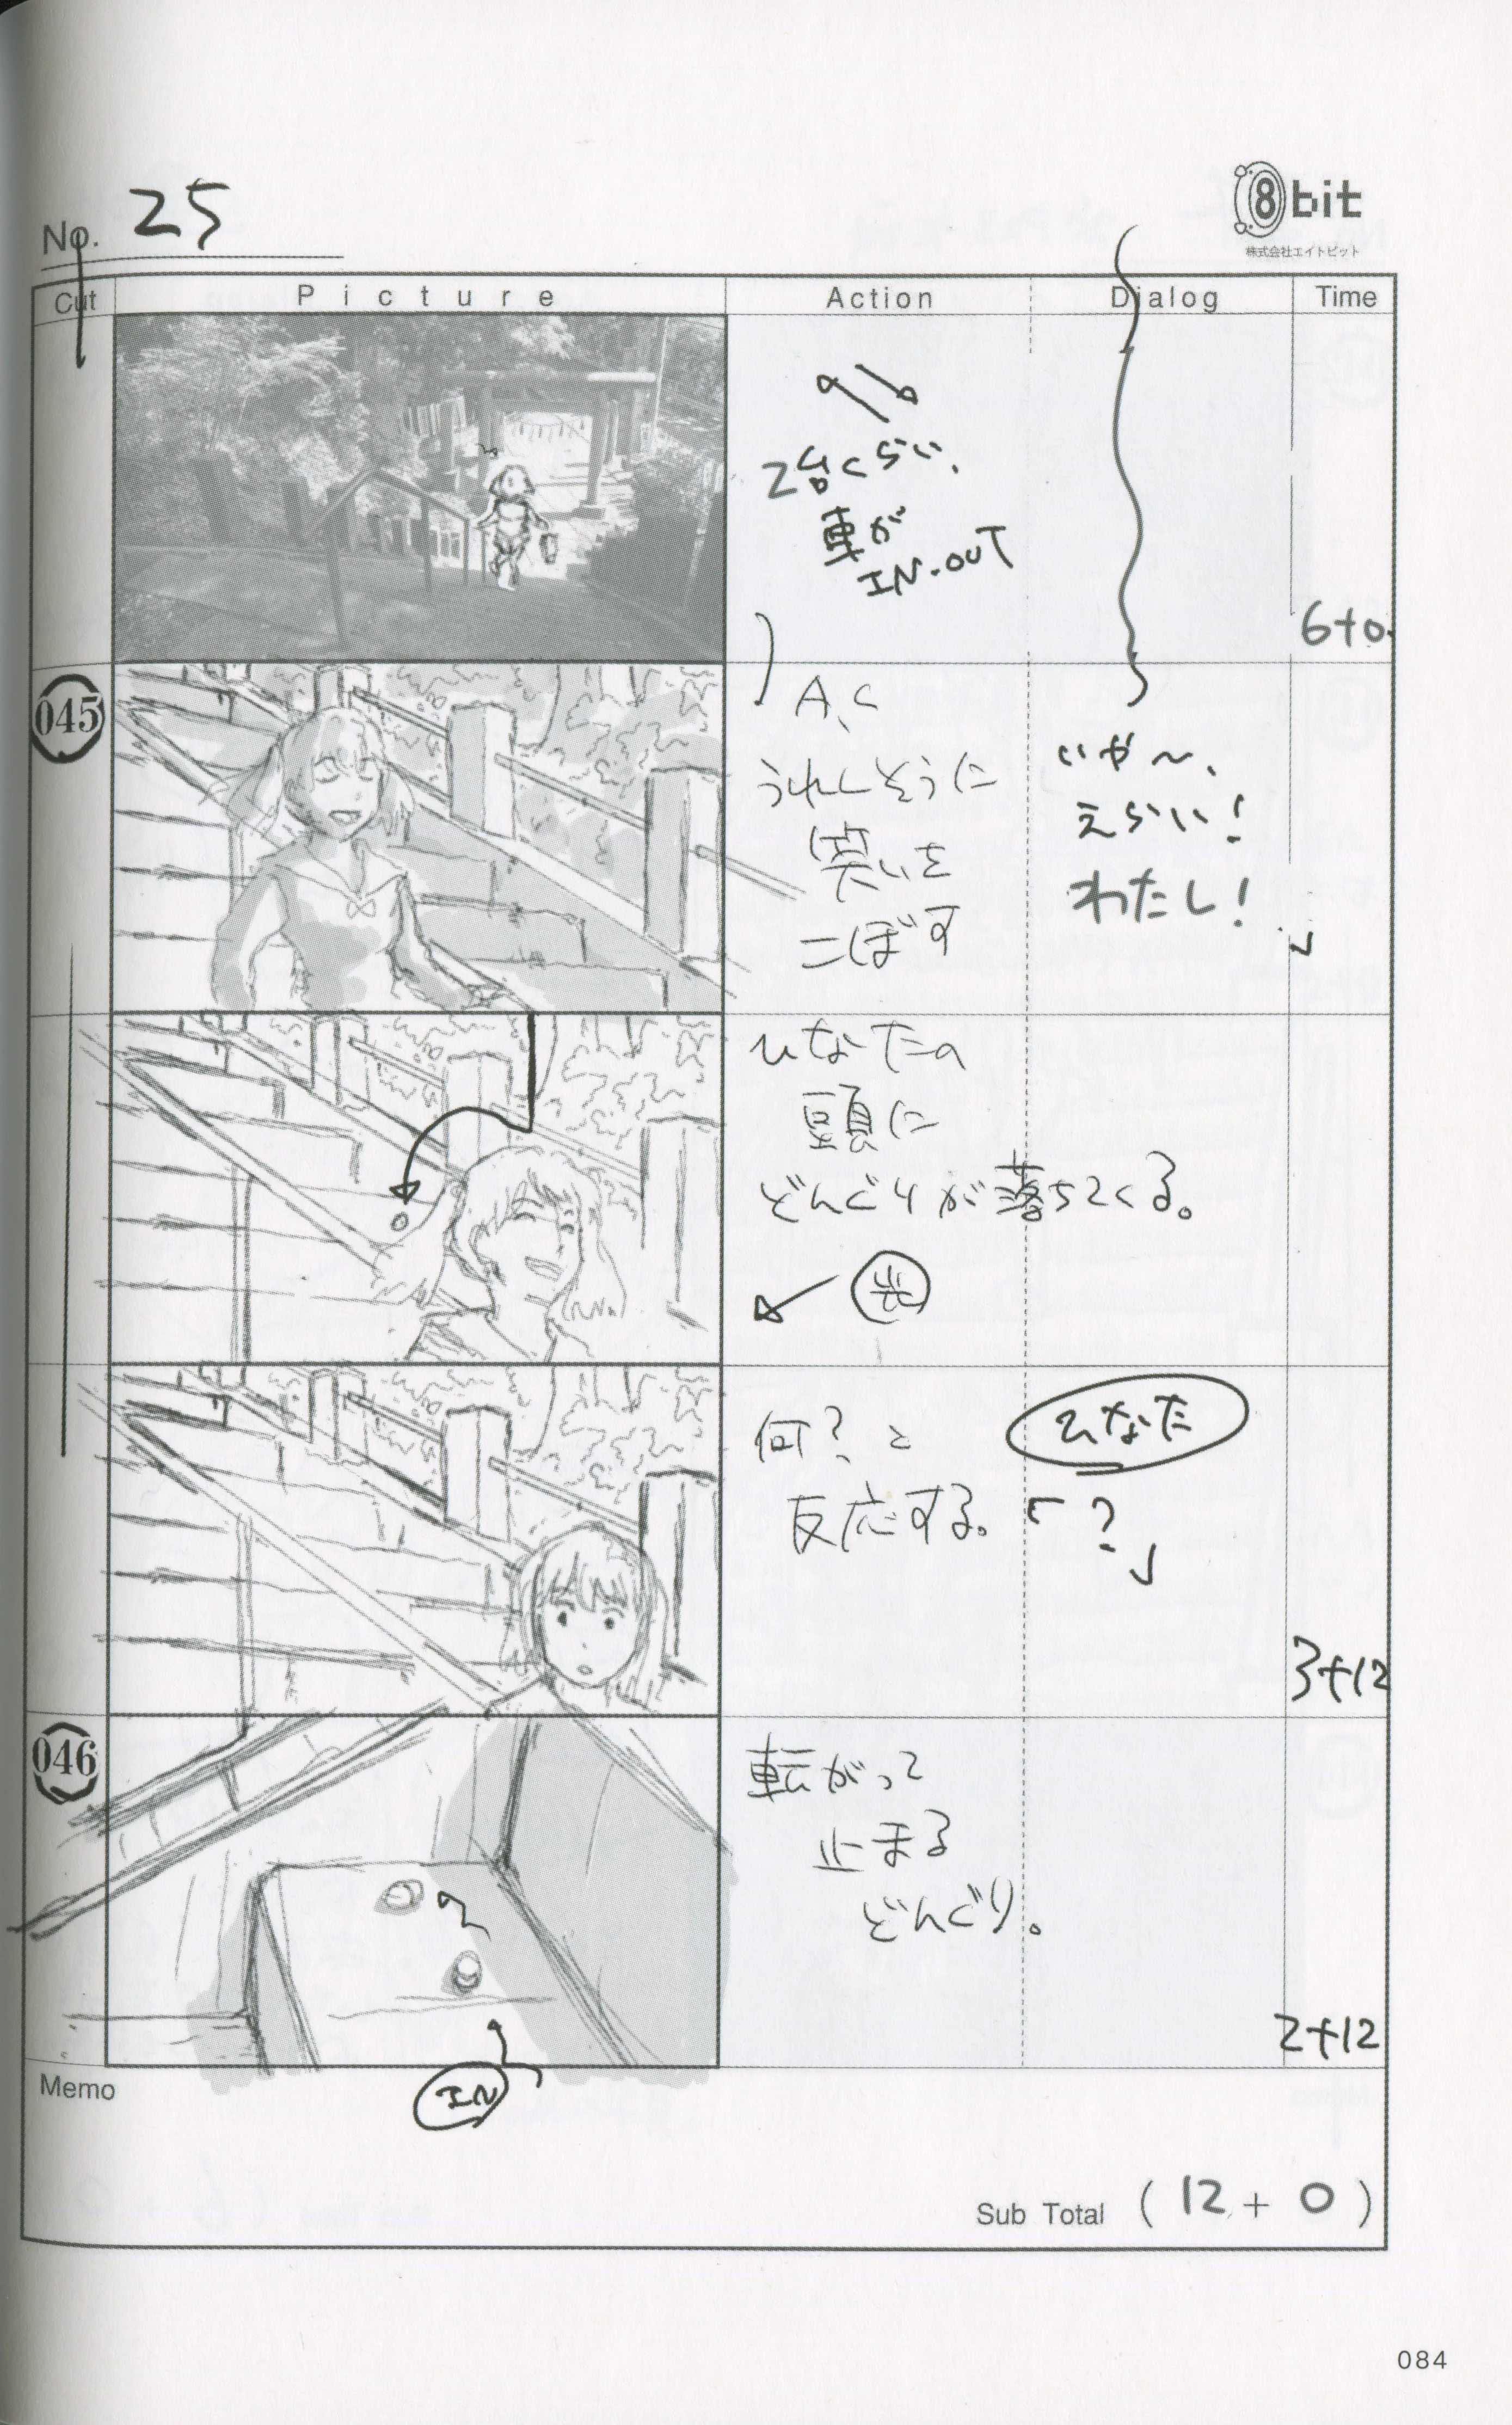 No. 25
8bit
株式会社エイトビット
Cut
Picture
Action
Dialog
Time
2台くらい、
車が
IN.OUT
6+0
045
A.C
うれしそうに
笑いを
こぼす
いや〜、
えらい!
わたし!
」
ひなたの
頭に
どんぐりが落ちてくる。
何?と
反応する。
ひなた
「?」
3+12
046
転がって
止まる
どんぐり。
IN
2+12
Memo
Sub Total (12 + 0)
084